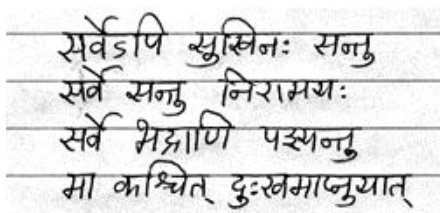 सर्वेऽपि सुखिनः सन्तु
सर्वे सन्तु निरामयः
सर्वे भद्राणि पश्यन्तु
मा कश्चित् दुःखमाप्नुयात्